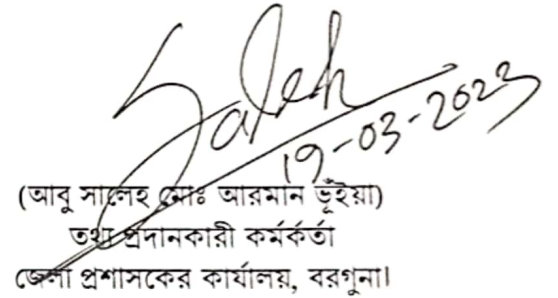 Saleh
19-03-2023
(আবু সালেহ মোঃ আরমান ভূঁইয়া)
তথ্য প্রদানকারী কর্মকর্তা
জেলা প্রশাসকের কার্যালয়, বরগুনা।